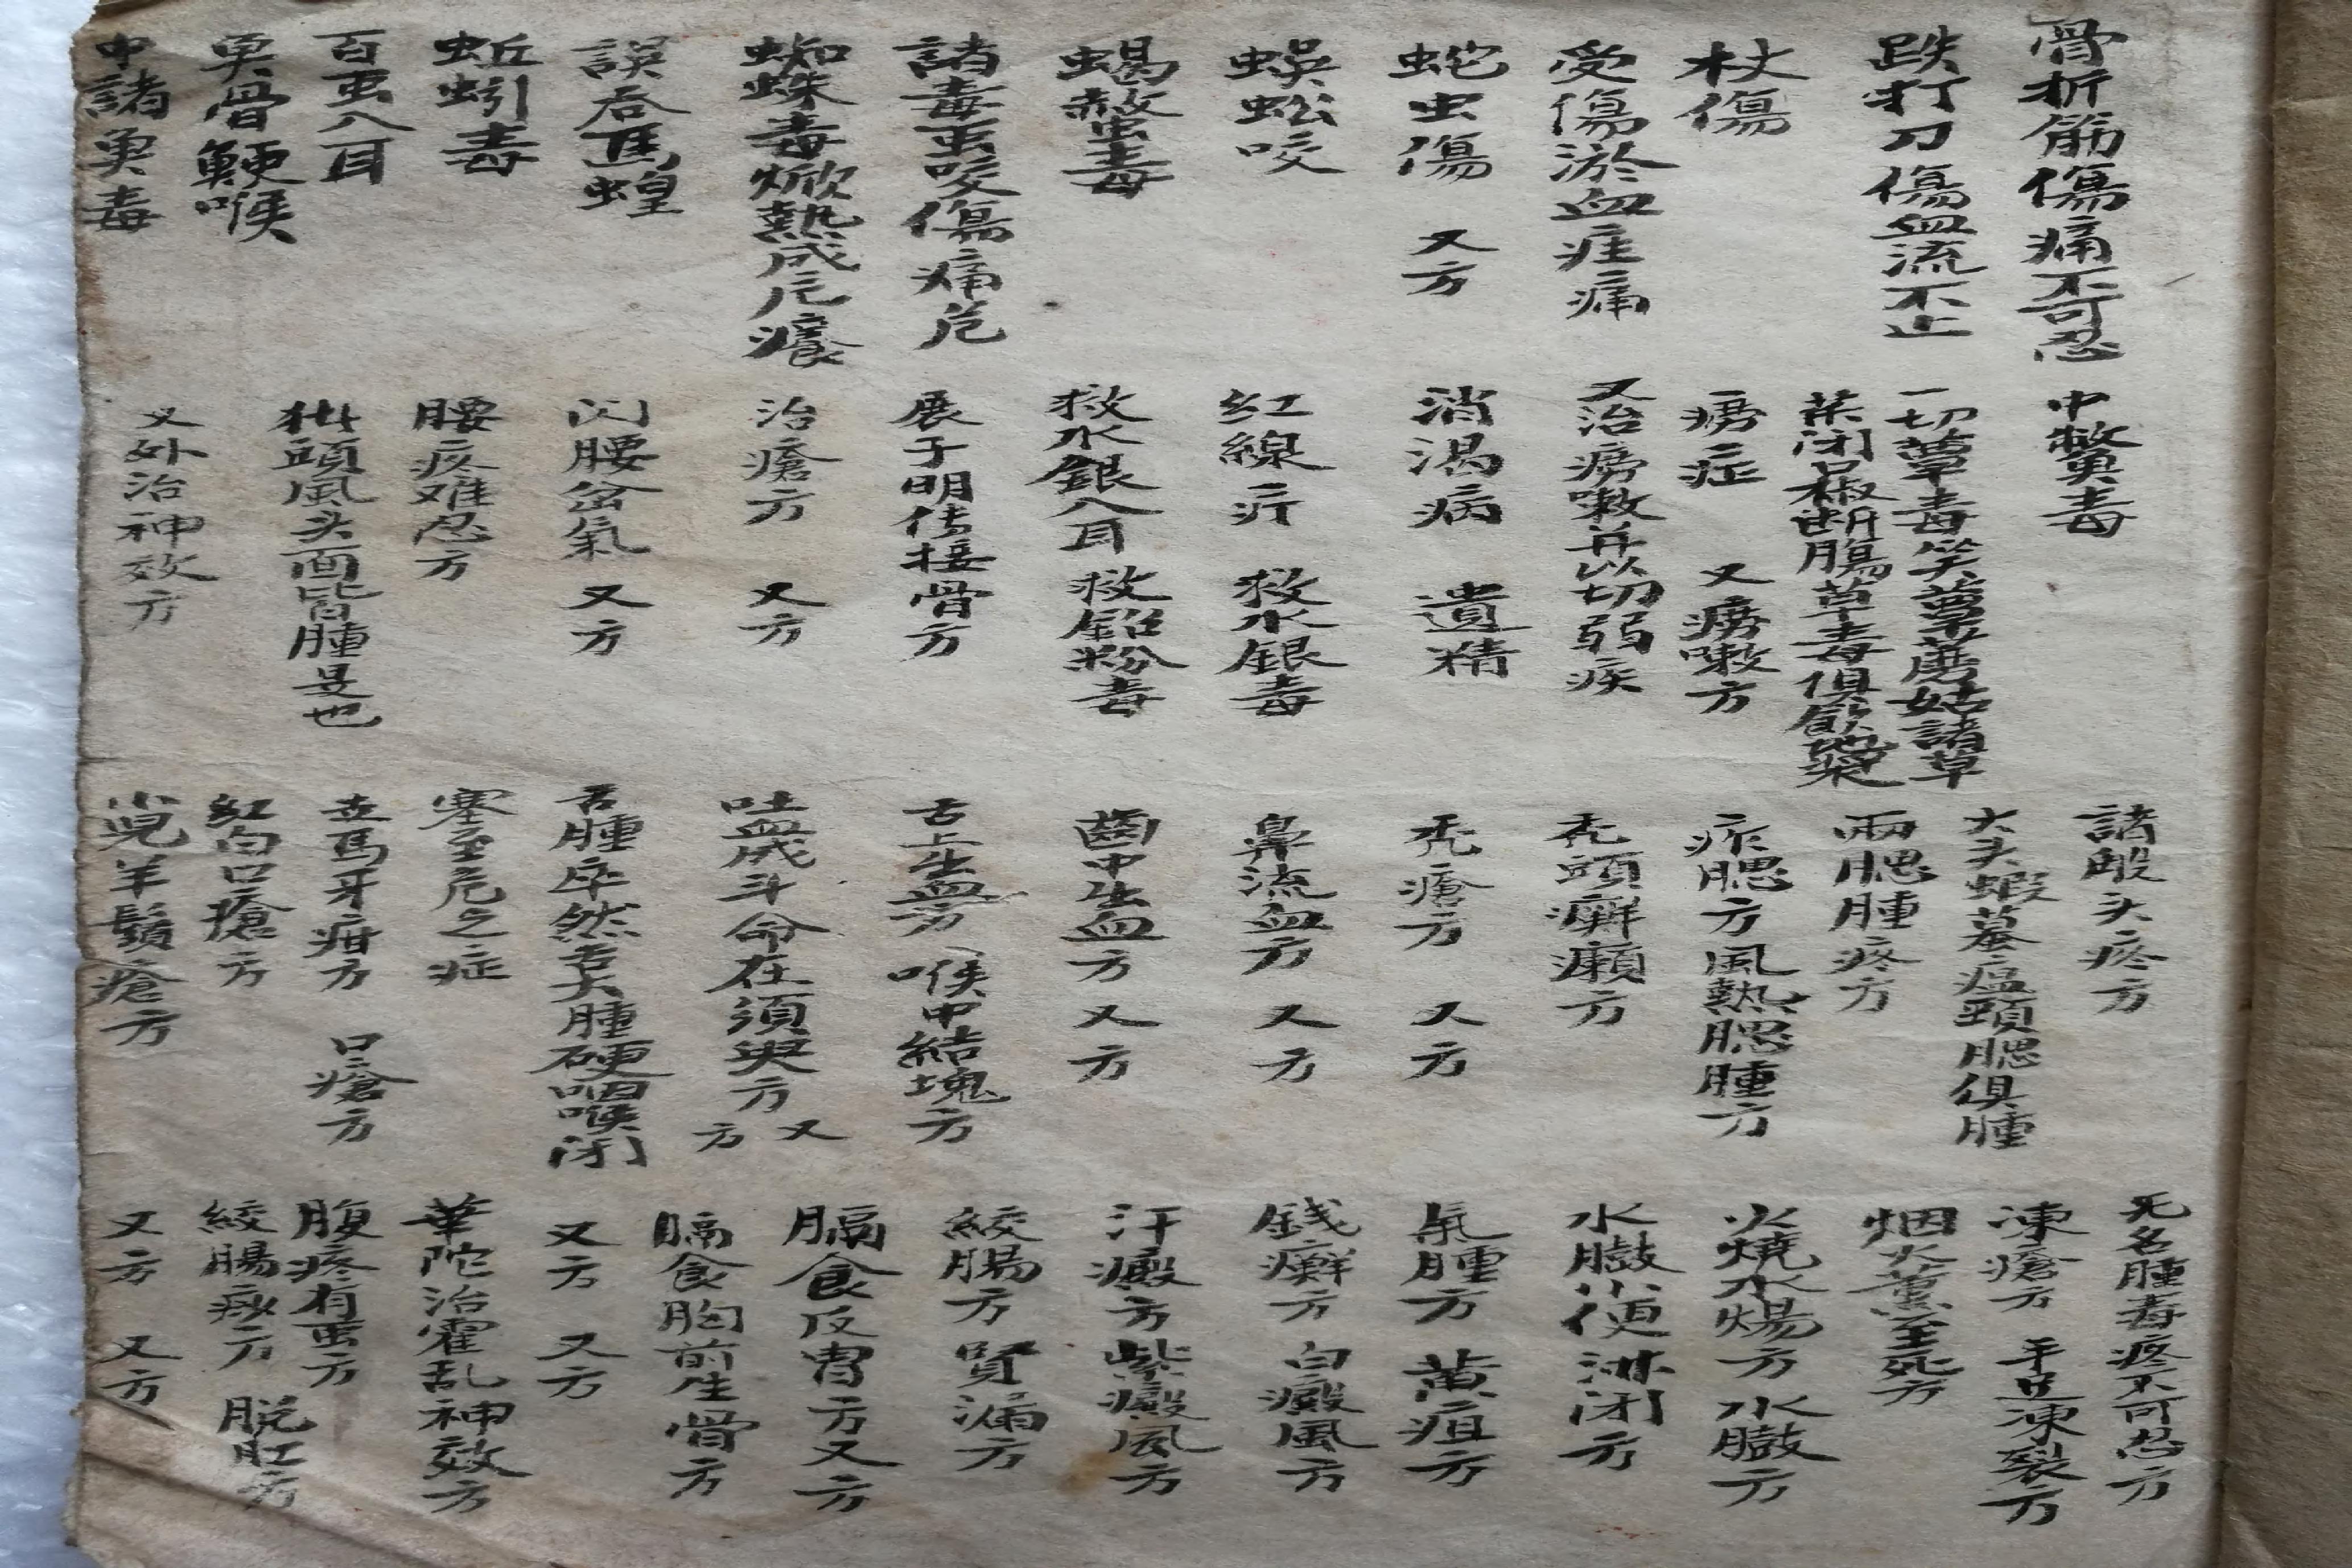 骨折筋傷痛不可忍
跌打刀傷血流不止
杖傷
受傷淤血疰痛
蛇虫傷 又方
蜈蚣咬
蝎螫毒
諸毒䖝咬傷痛危
蜘蛛毒焮熱成瘡
誤吞馬蝗
蚯蚓毒
百䖝入耳
魚骨鯁喉
中諸魚毒
中鱉魚毒
一切蕈毒笑蕈蘑菇諸草
菜閉口椒断腸草毒俱飲地漿
癆症 又癆嗽方
又治癆嗽并以切弱疾
消渴病 遺精
紅線疔 救水銀毒
救水銀入耳 救鉛粉毒
展于明传接骨方
治瘡方 又方
闪腰岔氣 又方
腰疼难忍方
頭風头面皆腫是也
又外治神效方
諸般头疼方
大头蝦蟇瘟頸腮俱腫
兩腮腫疼方
痄腮方 風熱腮腫方
秃頭癬癩方
秃瘡方 又方
鼻流血方 又方
齒中生血方 又方
舌上生血方 喉中結塊方
吐血成斗命在須臾方 又方
舌腫卒然舌大腫硬咽喉閉
塞至危之症
走馬牙疳方 口瘡方
紅白口瘡方
小児羊鬚瘡方
无名腫毒疼不可忍方
凍瘡方 手足凍裂方
烟火薰至死方
火燒水煬方 水臌方
水臌小便淋闭方
氣腫方 黄疸方
錢癬方 白癜風方
汗癜方 紫癜風方
絞腸方 腎漏方
膈食反胃方 又方
膈食胸前生骨方
又方 又方
華陀治霍乱神效方
腹疼有䖝方
絞腸痧方 脱肛方
又方 又方